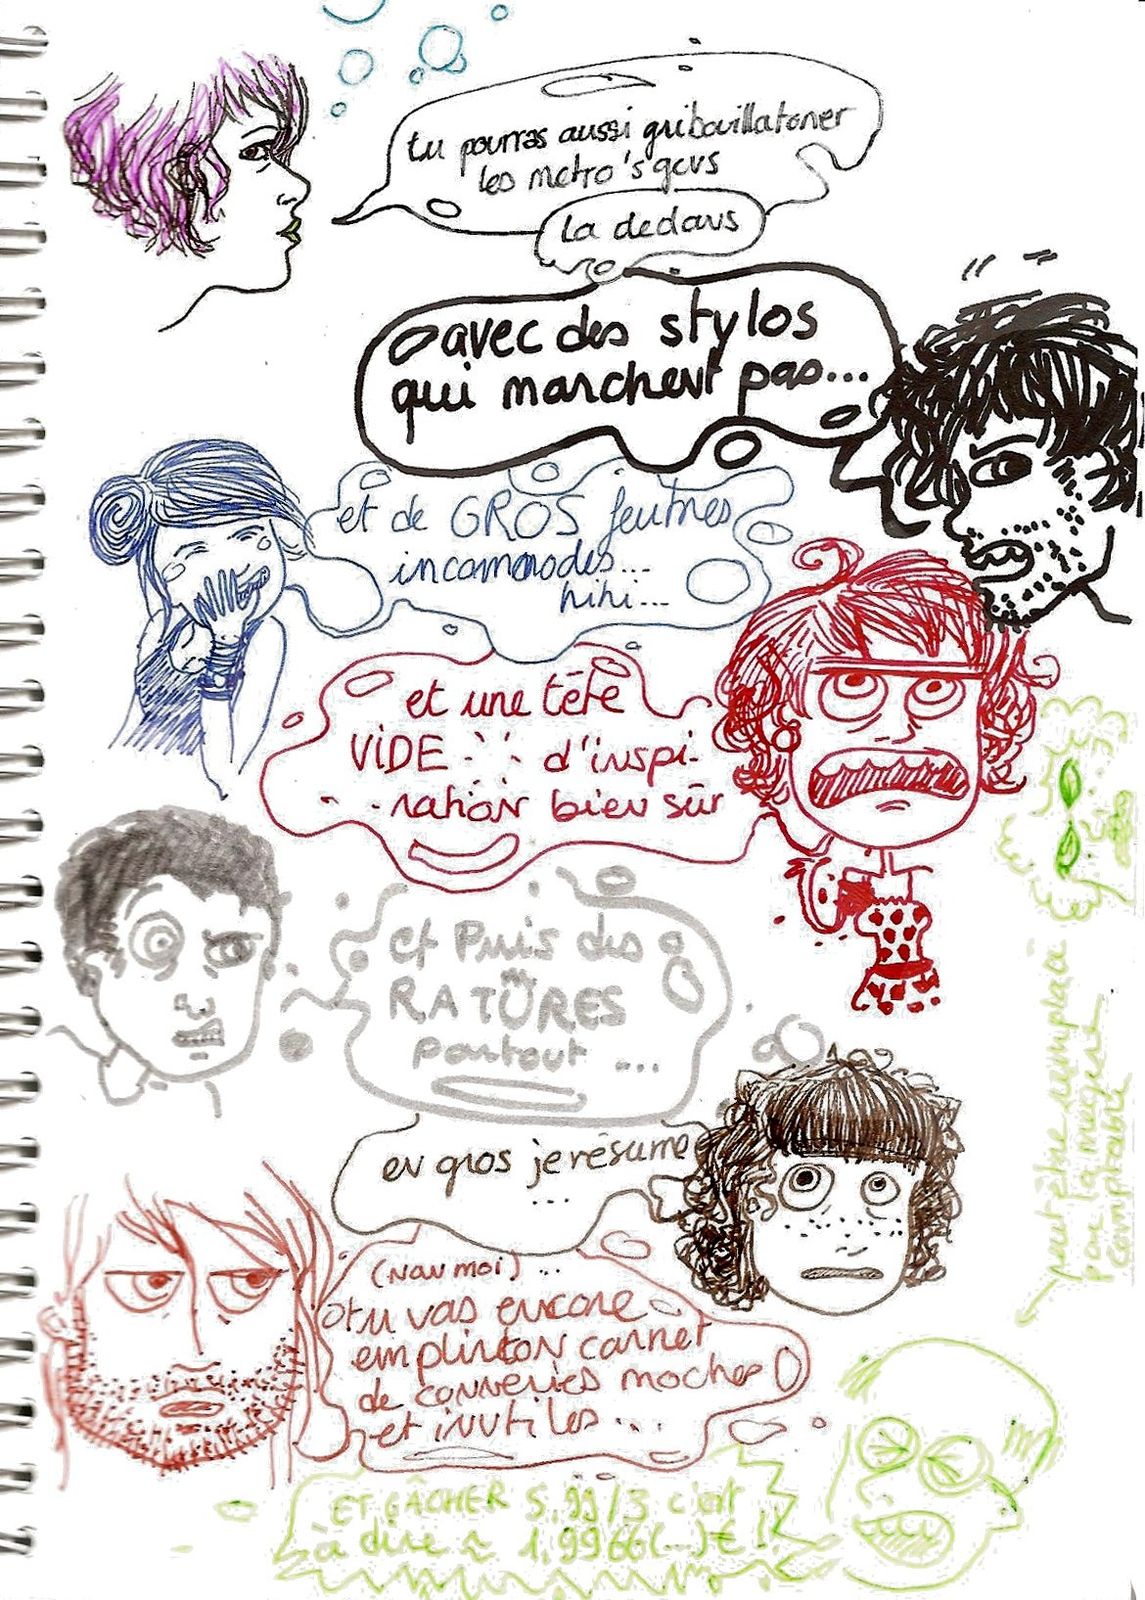 tu pourras aussi gribouillatoner
les metro's gens
la dedans
avec des stylos
qui marchent pas...
et de GROS feutres
incommodes...
hihi...
et une tête
VIDE d'inspi-
ration bien sûr
et Puis des
RATURES
partout ...
en gros je résume
...
(nan moi) ..
tu vas encore
emplir ton carnet
de conneries moches
et inutiles...
ET GÂCHER 5,99/3 c'est
à dire ~ 1,9966(...)€ !!
peut être remplacé
par la mujent
comptable